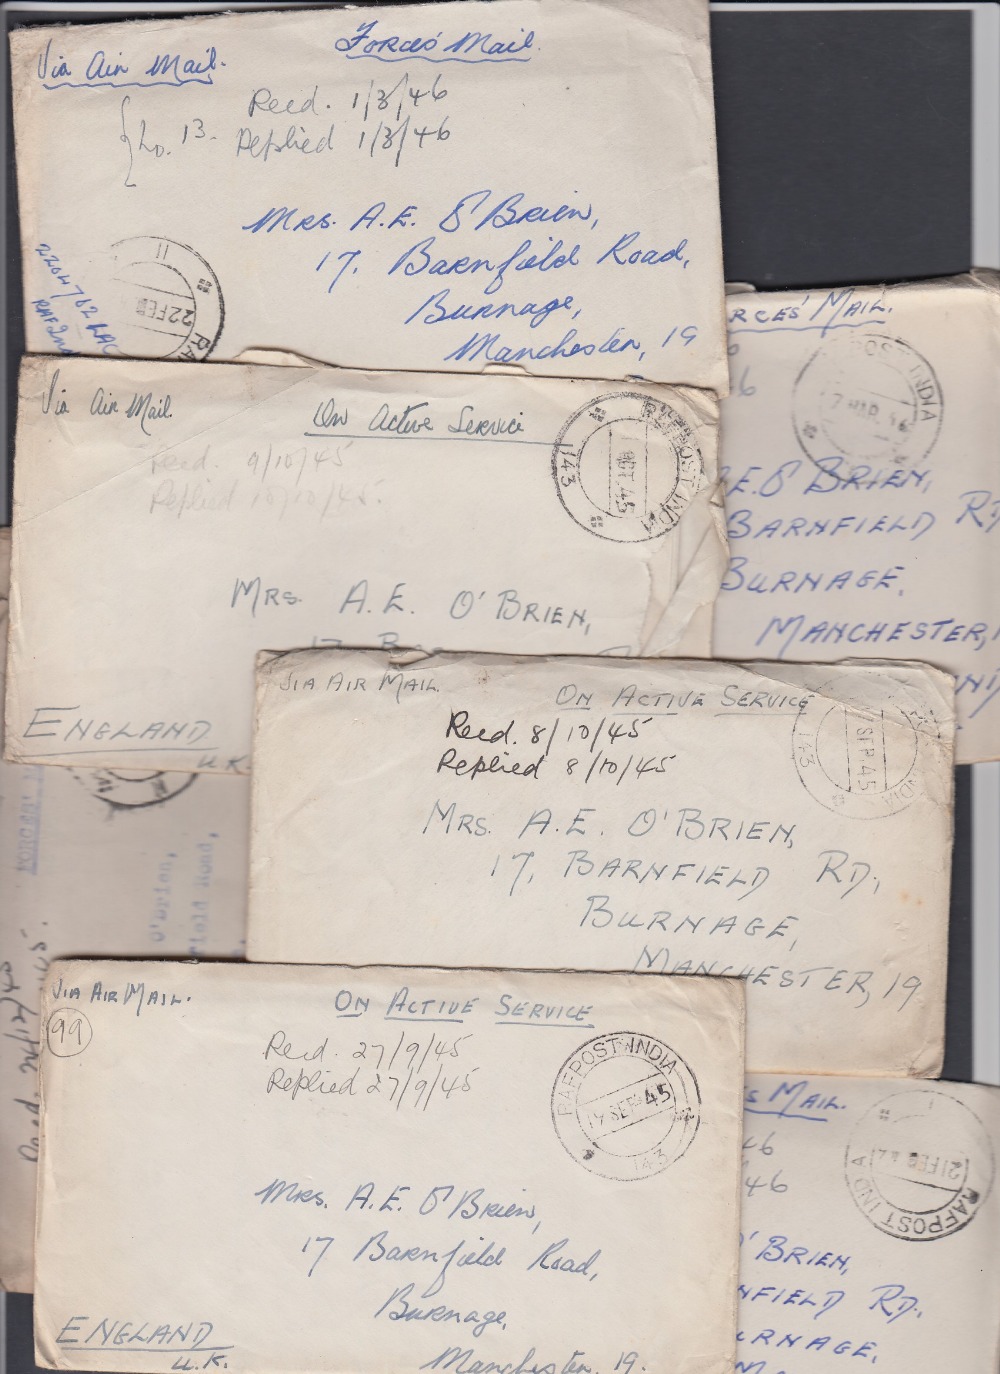 Via Air Mail.
Forces' Mail.
Recd. 1/3/46
Replied 1/3/46
No. 13.
Mrs. A.E. O'Brien,
17, Barnfield Road,
Burnage,
Manchester, 19
22 FEB
2204782 LAC
RCES' MAIL.
POST INDIA
MAR 46
.E. O'BRIEN,
BARNFIELD RD
BURNAGE,
MANCHESTER,
Via Air Mail.
On Active Service
Recd. 9/10/45
Replied 10/10/45.
RAFPOST INDIA
OCT. 45
143
MRS. A.E. O'BRIEN,
17
ENGLAND
U.K.
VIA AIR MAIL.
ON ACTIVE SERVICE
Recd. 8/10/45
Replied 8/10/45
SEP. 45
INDIA
143
MRS. A.E. O'BRIEN,
17, BARNFIELD RD.,
BURNAGE,
MANCHESTER, 19
O'Brien,
field Road,
VIA AIR MAIL.
99
ON ACTIVE SERVICE
Recd. 27/9/45
Replied 27/9/45
RAFPOST INDIA
SEP 45
143
Mrs. A.E. O'Brien,
17 Barnfield Road,
Burnage,
Manchester, 19.
ENGLAND
U.K.
S MAIL.
46
46
21 FEB
RAFPOST INDIA
O'BRIEN,
NFIELD RD.,
URNAGE,